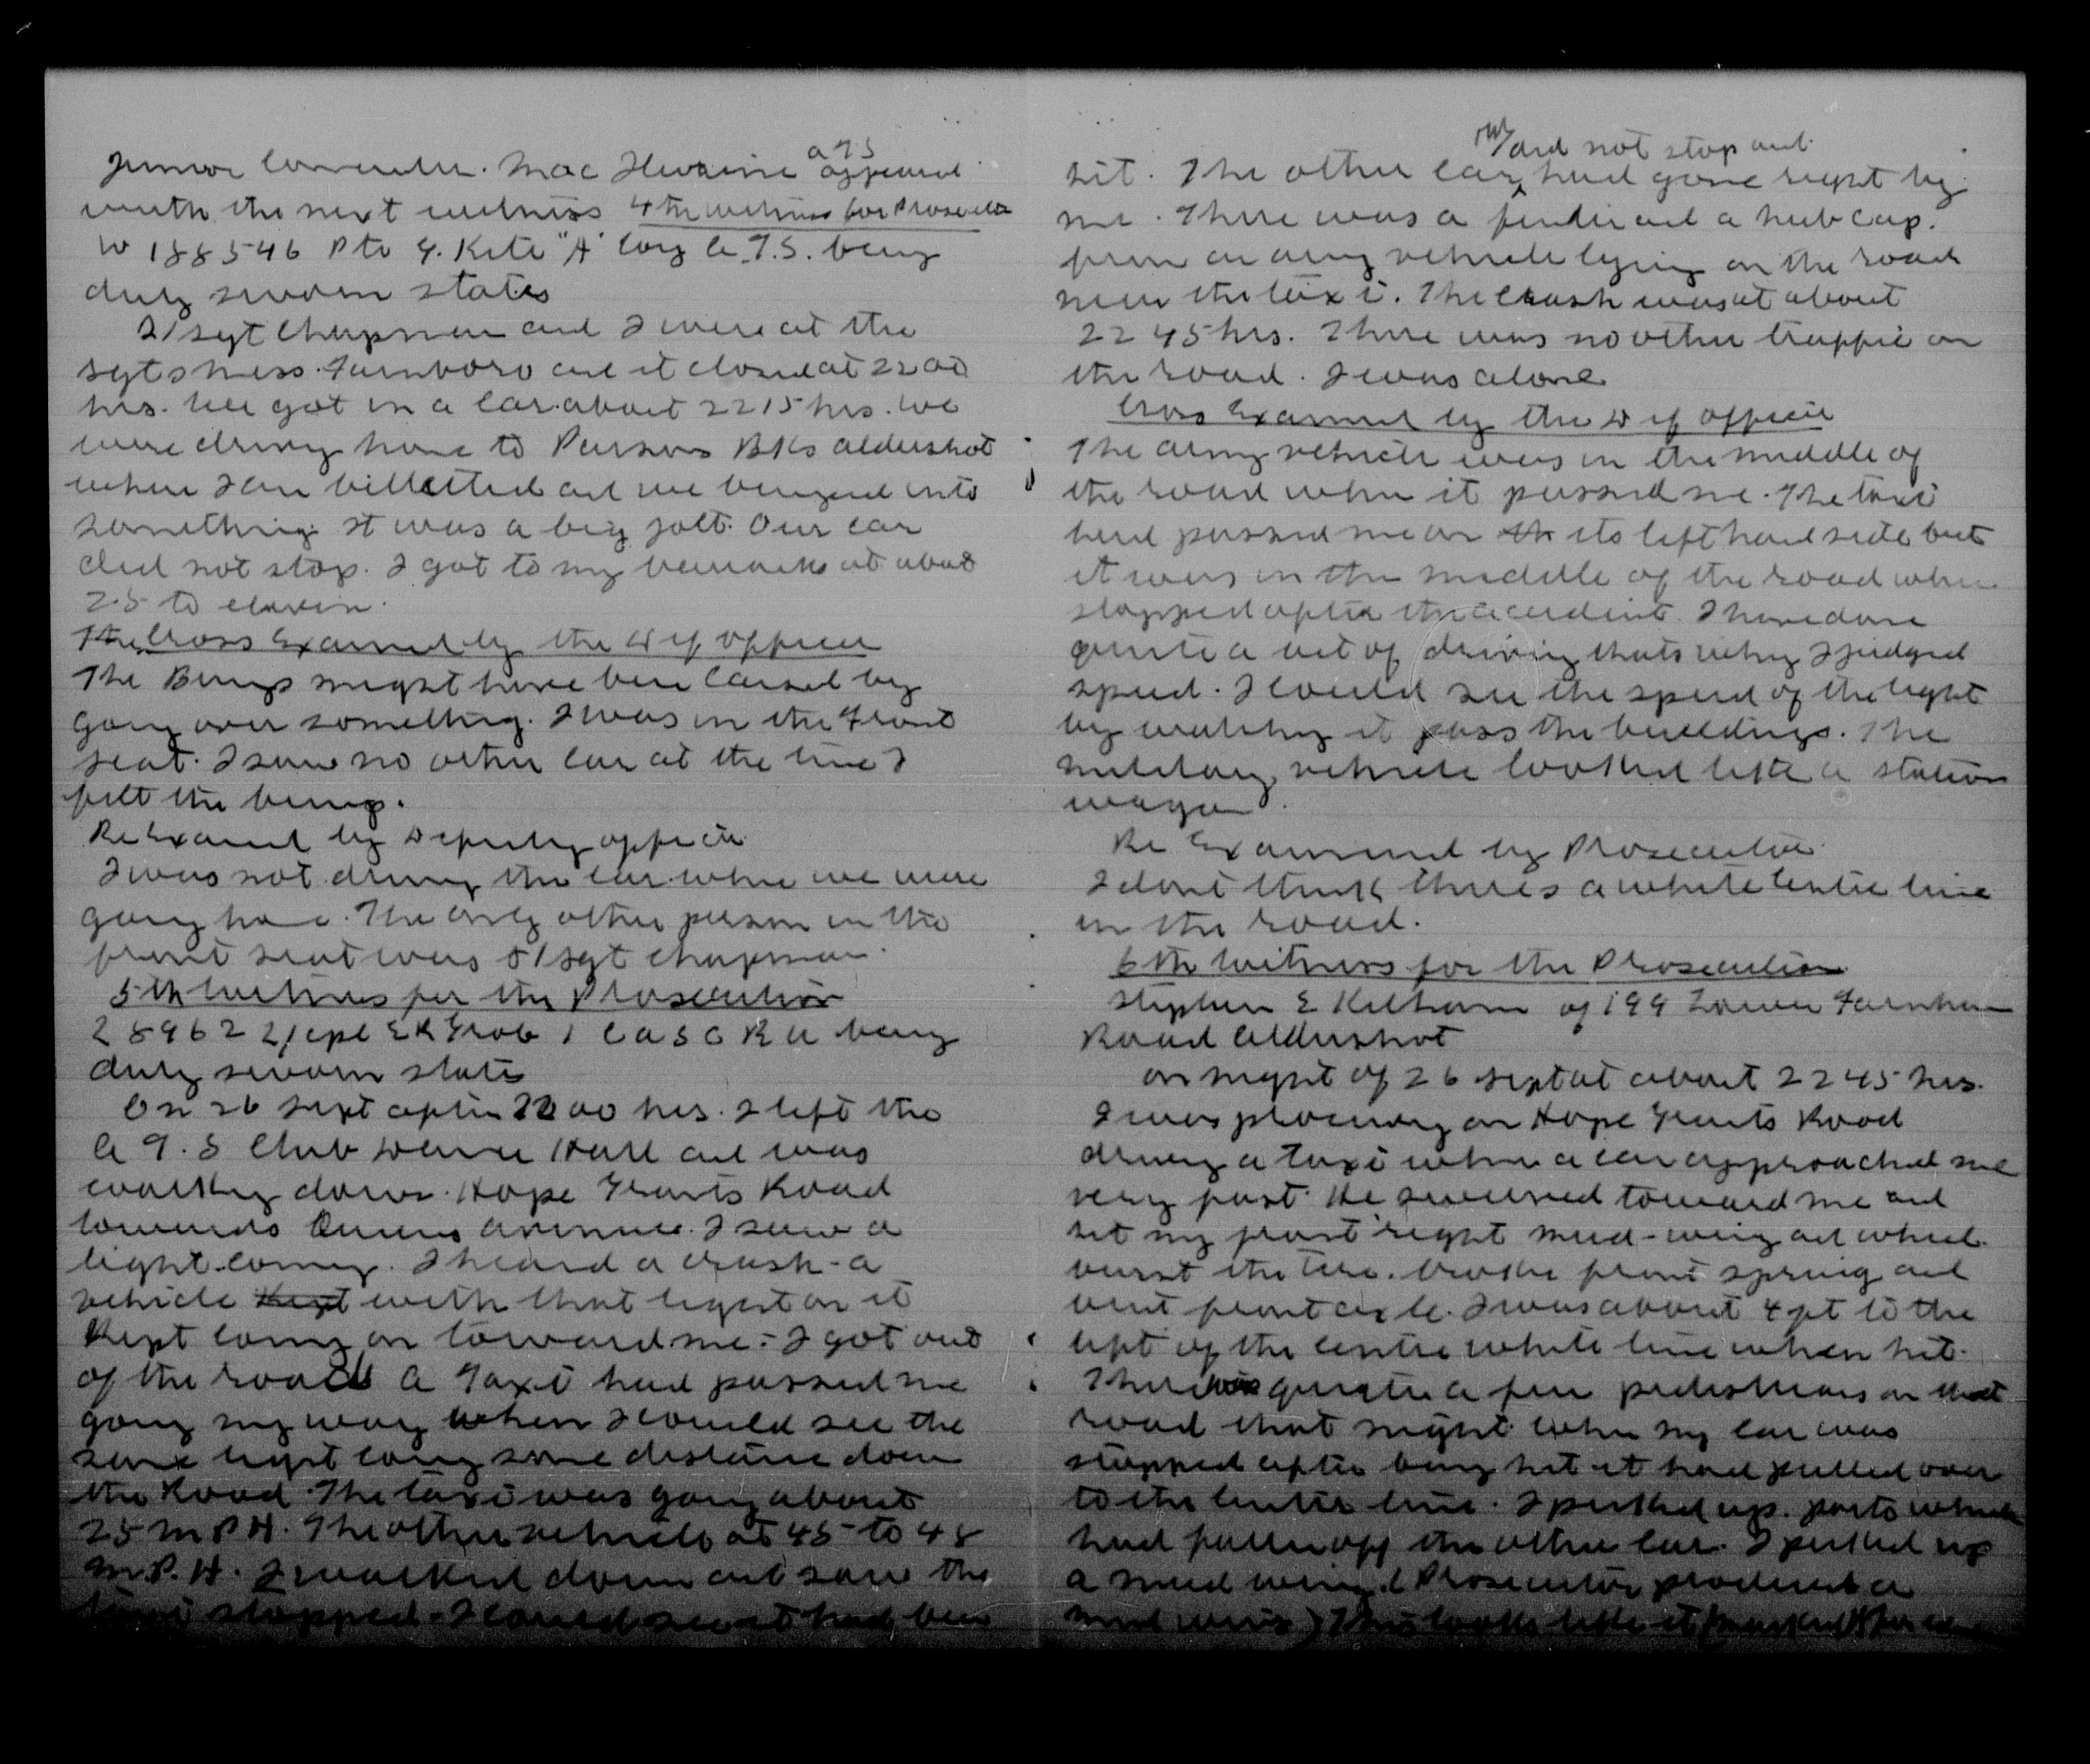 Junior Commander Mac Ilwaine ATS appeared
with the next witness 4th witness for Prosecution
W 188546 Pte G. Kite "A" Coy A.T.S. being
duly sworn states
S/Sgt Chapman and I were at the
Sgts mess Farnboro and it closed at 2200
hrs. We got in a car about 2215 hrs. We
were driving home to Parsons Bks Aldershot
where I am billetted and we bumped into
something. It was a big jolt. Our car
did not stop. I got to my barracks at about
25 to eleven.
The Cross Examined by the Def officer
The Bump might have been caused by
going over something. I was in the Front
seat. I saw no other car at the time I
felt the bump.
Re Examined by Deputy officer
I was not driving the car when we were
going home. The only other person in the
front seat was S/Sgt Chapman.
5th Witness for the Prosecution
28962 L/Cpl E R Grob 1 CASCRU being
duly sworn states
On 26 Sept after 2200 hrs. I left the
A.T.S Club Hall and was
walking down Hope Grants Road
towards Queens avenue. I saw a
light coming. I heard a crash - a
vehicle kept with that light on it
kept coming on toward me - I got out
of the road. A Taxi had passed me
going my way when I could see the
same light coming some distance down
the Road. The taxi was going about
25 M P H. The other vehicle at 45 to 48
M.P.H. I walked down and saw the
taxi stopped. I could see it had been
hit. The other car had gone right by
did not stop and
me. There was a fender and a hub cap
from an army vehicle lying on the road
near the taxi. The crash was at about
2245 hrs. There was no other traffic on
the road. I was alone
Cross Examined by the Def officer
The army vehicle was in the middle of
the road when it passed me. The taxi
had passed me on th its left hand side but
it was in the middle of the road when
stopped after the accident. I have done
quite a bit of driving thats why I judged
speed. I could see the speed of the light
by watching it pass the buildings. The
military vehicle looked like a station
wagon.
Re Examined by Prosecutor
I dont think there is a white centre line
in the road.
6th Witness for the Prosecution
Stephen E Kelham of 199 Lower Farnham
Road Aldershot
on night of 26 Sept at about 2245 hrs.
I was proceeding on Hope Grants Road
driving a taxi when a car approached me
very fast. He swerved toward me and
hit my front right mud-wing and wheel
burst the tire. broke front spring and
bent front axle. I was about 4 ft to the
left of the centre white line when hit.
There was quite a few pedestrians on that
road that night. When my car was
stopped after being hit it had pulled over
to the centre line. I picked up parts which
had fallen off the other car. I picked up
a mud wing. (Prosecutor produced a
mud wing) This looks like it (marked